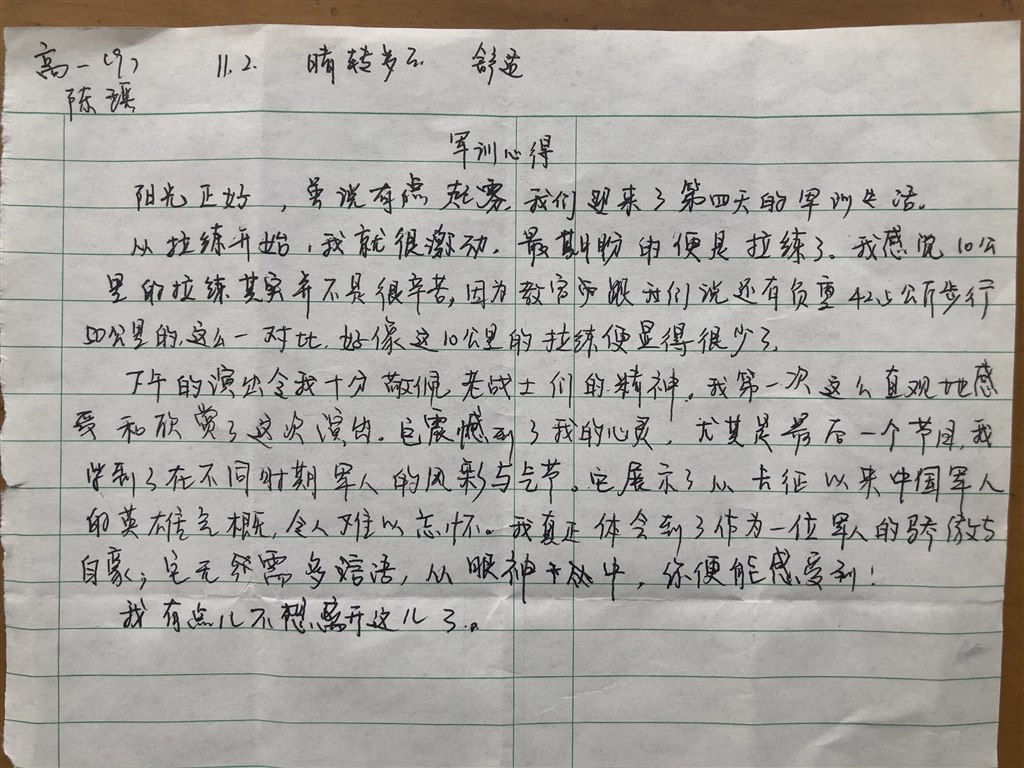 高一(9) 11.2. 晴转多云 舒适
陈瑛
军训心得
阳光正好，虽说有点起雾，我们迎来了第四天的军训生活。
从拉练开始，我就很激动，最期盼的便是拉练了。我感觉10公
里的拉练其实并不是很辛苦，因为教官跟我们说还有负重42.5公斤步行
50公里的，这么一对比，好像这10公里的拉练便显得很少了。
下午的演出令我十分敬佩老战士们的精神。我第一次这么直观地感
受和欣赏了这次演出。它震憾到了我的心灵，尤其是最后一个节目，我
学到了在不同时期军人的风彩与气节。它展示了从长征以来中国军人
的英雄气概，令人难以忘怀。我真正体会到了作为一位军人的骄傲与
自豪；它无需多语，从眼神中，你便能感受到！
我有点儿不想离开这儿了。